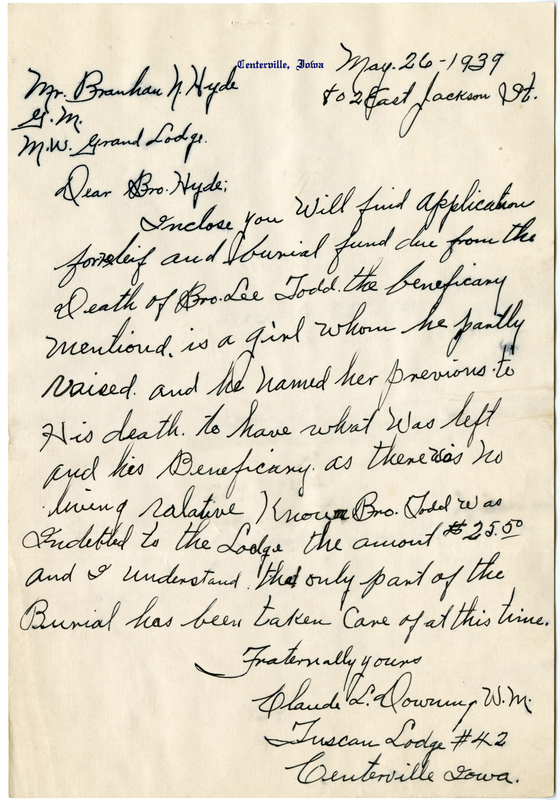 Centerville, Iowa
May. 26 - 1939
802 East Jackson St.
Mr. Branhan N Hyde
G. M.
M.W. Grand Lodge.
Dear Bro. Hyde;
Inclose you Will find Application
for releif and burial fund due from the
Death of Bro. Lee Todd. the beneficary
mentioned. is a girl whom he partly
raised. and he named her previous to
His death. to have what was left
and his Beneficary. as there was no
living ralative Known Bro. Todd was
Indebted to the Lodge the amout $25.50
and I understand. that only part of the
Burial has been taken Care of at this time.
Fraternally yours
Claude L. Downing W.M.
Tuscan Lodge #42
Centerville Iowa.